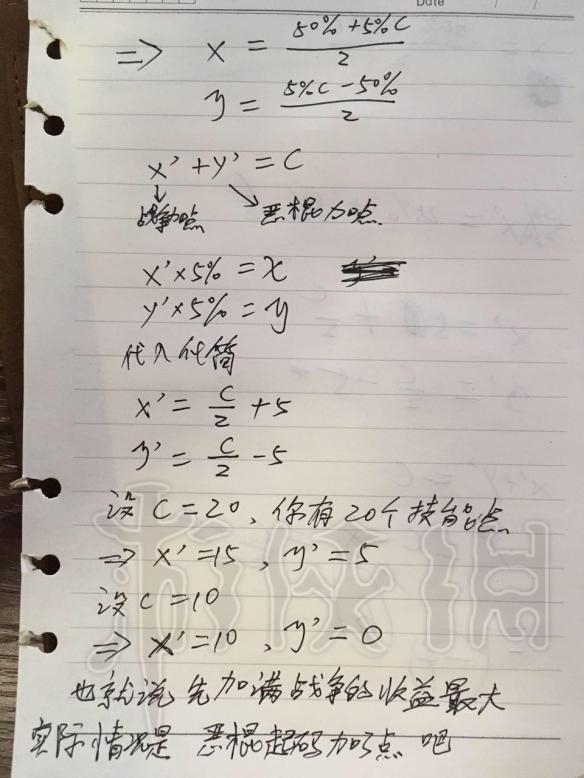 Date
=> x = (50% + 5%C) / 2
y = (5%C - 50%) / 2
x' + y' = C
战争加点 恶棍加点
x' × 5% = x
y' × 5% = y
代入化简
x' = C/2 + 5
y' = C/2 - 5
设 C = 20, 你有20个技能点
=> x' = 15, y' = 5
设 C = 10
=> x' = 10, y' = 0
也就说 先加满战争的收益最大
实际情况是 恶棍起码加5点 吧